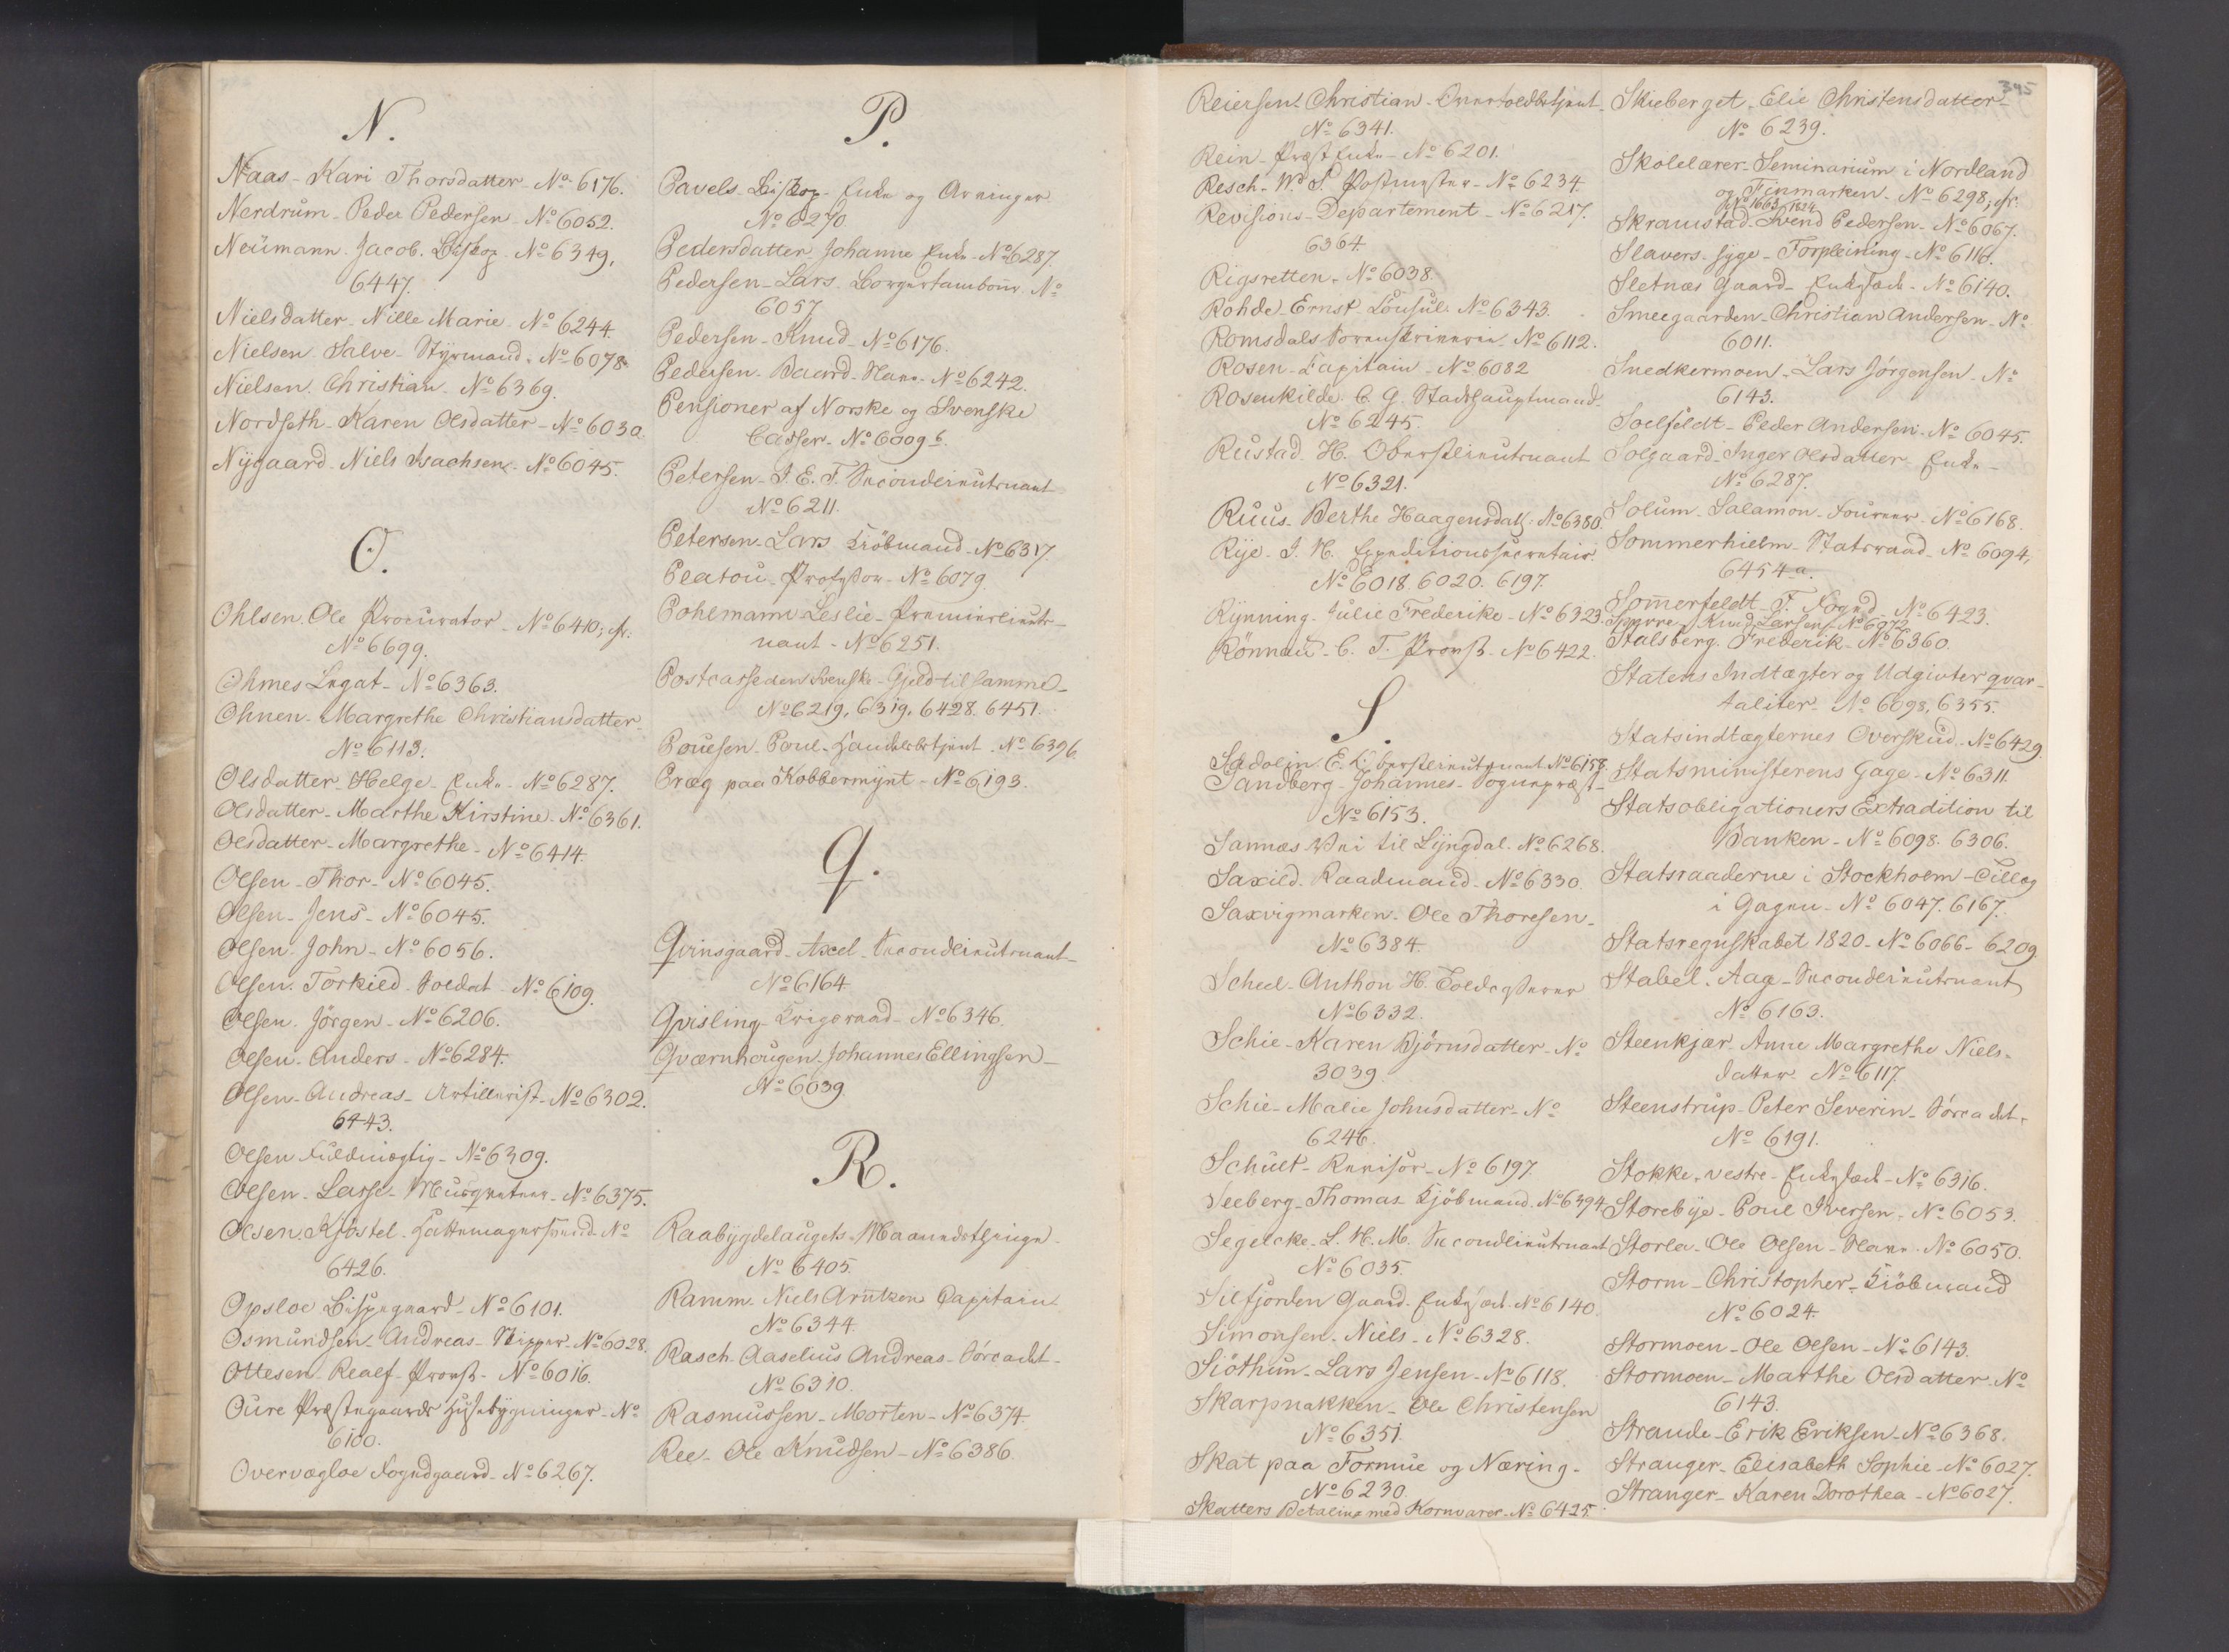 N.
Naas - Kari Thorsdatter - No 6176.
Nerdrum - Peder Pedersen - No 6052.
Neumann - Jacob. Biskop - No 6349,
6447.
Nielsdatter - Nille Marie - No 6244.
Nielsen - Salve - Styrmand - No 6078.
Nielsen - Christian - No 6369.
Nordseth - Karen Olsdatter - No 6030
Nygaard - Niels Isachsen - No 6045.
O.
Ohlsen - Ole Procurator - No 6410; cfr.
No 6699.
Ohmes Legat - No 6363.
Ohnen - Margrethe Christiansdatter
No 6113.
Olsdatter - Helge - Enke - No 6287.
Olsdatter - Marthe Kirstine - No 6361.
Olsdatter - Margrethe - No 6414.
Olsen - Thor - No 6045.
Olsen - Jens - No 6045.
Olsen - John - No 6056.
Olsen - Torkild - Soldat - No 6109.
Olsen - Jörgen - No 6206.
Olsen - Anders - No 6284.
Olsen - Andreas - Artillerist - No 6302.
6443.
Olsen Fuldmægtig - No 6309.
Olsen - Lasse - Musqueteer - No 6375.
Olsen - Kjöstel - Hattemagersvend - No
6426.
Opsloe Bispegaard - No 6101.
Osmundsen - Andreas - Skipper - No 6028.
Ottesen - Realf - Provst - No 6016.
Oure Præstegaards Huusbygninger - No
6100.
Overvægloe Fogedgaard - No 6267.
P.
Pavels - Biskop - Enke og Arvinger
No 6270
Pedersdatter - Johanne Enke - No 6287.
Pedersen - Lars - Borgertambour - No
6057
Pedersen - Knud - No 6176.
Pedersen - Baard - Slave - No 6242.
Pensioner af Norske og Svenske
Casser - No 6009 b.
Petersen - I. E. F. Secondlieutenant
No 6211.
Petersen - Lars Kiöbmand - No 6317.
Platou - Professor - No 6079.
Pohlmann - Leslie - Premierlieute-
nant - No 6251.
Postcasse den Svenske - Gjeld til samme -
No 6219. 6319. 6428. 6451.
Pouesen - Poul - Handelsbetjent - No 6396
Præg paa Kobbermynt - No 6193.
Q.
Qvinsgaard - Axel - Secondlieutenant -
No 6164
Qvisling - Krigsraad - No 6346.
Qværnhougen - Johannes Ellingsen -
No 6039
R.
Raabygdelaugets Maanedsthinge -
No 6405.
Ramm - Niels Arntzen Capitain -
No 6344
Rasch - Aaselius Andreas - Söecadet -
No 6310.
Rasmussen - Morten - No 6374.
Ree - Ole Knudsen - No 6386.
395
Reiersen - Christian - Overtoldbetjent -
No 6341.
Rein - Præst Enke - No 6201.
Resch - Postmester - No 6234.
Revisions-Departement - No 6217.
6364.
Rigsretten - No 6038.
Rohde - Ernst - Consul - No 6343.
Romsdals Sorenskriverie - No 6112.
Rosen - Capitain - No 6082
Rosenkilde - C. G. Stadshauptmand -
No 6245.
Rustad - H. Oberstlieutenant
No 6321.
Ruus - Berthe Haagensdatt: No 6380.
Rye - I. H. Expeditionssecretair.
No 6018. 6020. 6197.
Rynning - Julie Frederike - No 6323.
Rönnau - C. T. Provst - No 6422.
S.
Sadolin E. Oberstlieutenant No 6158.
Sandberg - Johannes - Sognepræst -
No 6153.
Sannæs Vei til Lyngdal - No 6268.
Saxild - Raadmand - No 6330.
Saxvigmarken - Ole Thoresen -
No 6384.
Scheel - Anthon H. Toldcasserer
No 6332.
Schie - Karen Björnsdatter - No
3039.
Schie - Malie Johnsdatter - No
6246.
Schult - Revisor - No 6197.
Seeberg - Thomas - Kjöbmand - No 6394
Segelcke - L. H. M. Secondlieutenant
No 6035.
Silfjorden Gaard - No 6140.
Simonsen - Niels - No 6328.
Siöthun - Lars Jensen - No 6118.
Skarpnakken - Ole Christensen
No 6351.
Skat paa Formue og Næring -
No 6230.
Skatters Betaling med Kornvarer - No 6425.
Skieberget - Elie Christensdatter -
No 6239.
Skolelærer-Seminarium i Nordland
og Finmarken - No 6298; cfr.
No 1663, 1624.
Skramstad - Svend Pedersen - No 6067.
Slavers - syge - Forpleining - No 6116.
Sletnæs Gaard - No 6140.
Smeegaarden - Christian Andersen - No
6011.
Snedkermoen - Lars Jörgensen - No
6143.
Soelfeldt - Peder Andersen - No 6045.
Solgaard - Inger Olsdatter - Enke -
No 6287.
Solum - Salamon - Foureer - No 6168.
Sommerhielm - Statsraad - No 6094,
6454 a.
Sommerfeldt - F. Foged - No 6423.
Spurre - Knud Larsen - No 6072
Stalsberg - Frederik - No 6360.
Statens Indtægter og Udgivter qvar-
taliter - No 6098, 6355.
Statsindtægternes Overskud - No 6429.
Statsministerens Gage - No 6311
Statsobligationers Extradition til
Banken - No 6098. 6306.
Statsraaderne i Stockholm - Tillæg
i Gagen - No 6047. 6167.
Statsregnskabet 1820 - No 6066 - 6209
Stabel - Aag - Secondlieutenant
No 6163.
Steenkjær - Anne Margrethe Niels-
datter - No 6117.
Steenstrup - Peter Severin - Söecadet -
No 6191.
Stokke - vestre - No 6316.
Storebye - Poul Iversen - No 6053.
Storlæ - Ole Olsen - Slave - No 6050.
Storm - Christopher - Kiöbmand
No 6024.
Stormoen - Ole Olsen - No 6143.
Stormoen - Marthe Olsdatter - No
6143.
Strande - Erik Eriksen - No 6368.
Stranger - Elisabeth Sophie - No 6027.
Stranger - Karen Dorothea - No 6027.